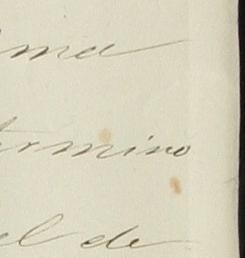 ma
termino
el de